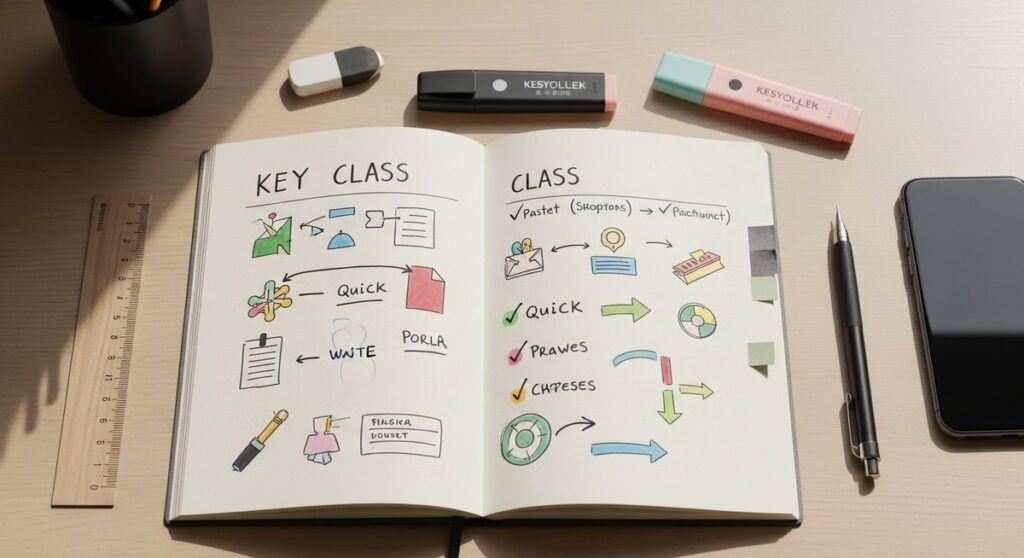 KESYOLLEK
KESYOLLEK
KEY CLASS
QUICK
WNTE
PORLA
CLASS
✓Pastet (Shoptons) → ✓
✓ QUICK
✓ PRAWES
✓ CHPESES